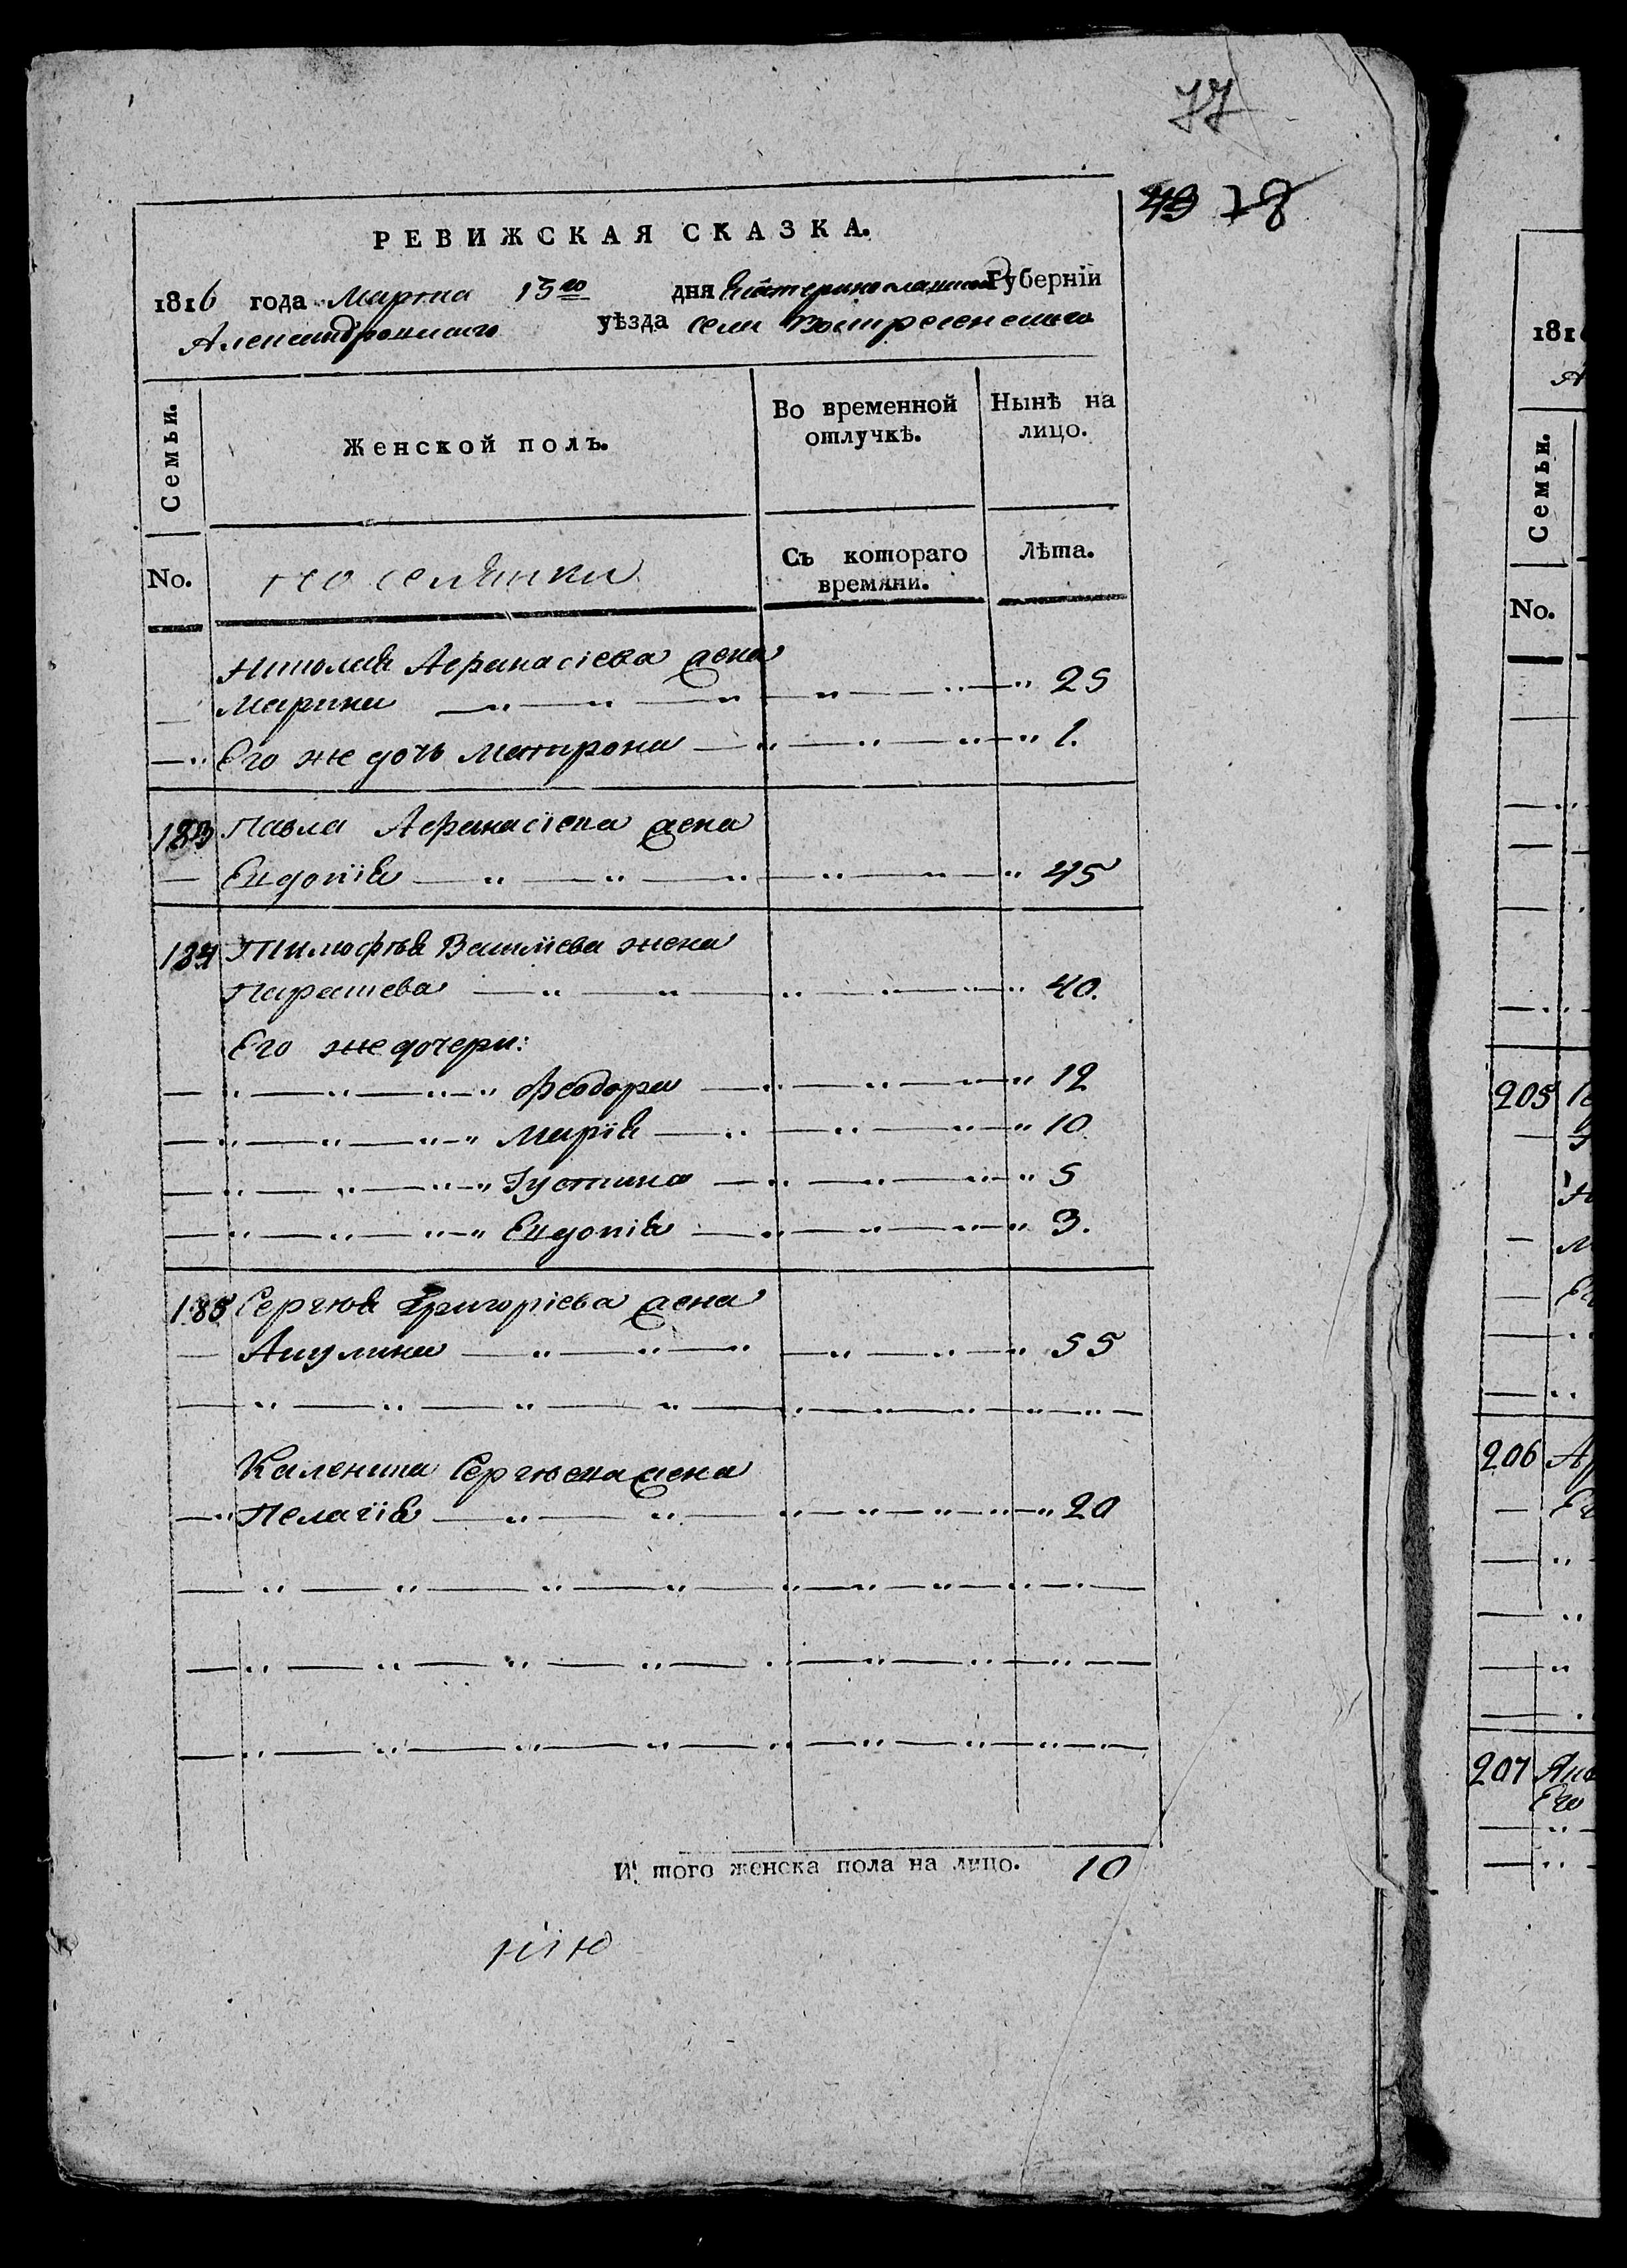 77
49 78
РЕВИЖСКАЯ СКАЗКА.
1816 года Марта 13го дня Екатеринославской Губерніи
Александровскаго уѣзда села Воскресенскаго
Семьи.
Женской полъ.
Во временной отлучкѣ.
Нынѣ на лицо.
No.
поселянки
Съ котораго времяни.
Лѣта.
Николая Афанасіева жена
Марина 25
Его же дочь Матрона 1.
183 Павла Афанасіева жена
Евдокія 45
184 Тимофѣя Василіева жена
Парасковья 40.
Его же дочери:
Феодора 12
Марія 10
Іустина 5
Евдокія 3.
185 Сергѣя Григоріева жена
Акулина 55
Каленика Сергѣева жена
Пелагія 20
И того женска пола на лицо. 10
181
А
Семьи.
No.
205
206
207
Его